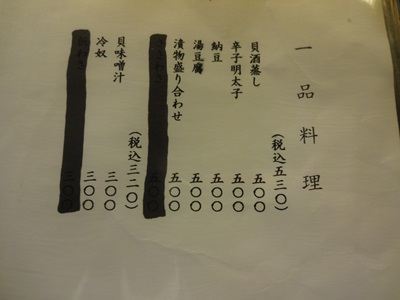 一品料理
(税込五三〇)
貝酒蒸し 五〇〇
辛子明太子 五〇〇
納豆 五〇〇
湯豆腐 五〇〇
漬物盛り合わせ 五〇〇
五〇〇
(税込三二〇)
貝味噌汁 三〇〇
冷奴 三〇〇
三〇〇